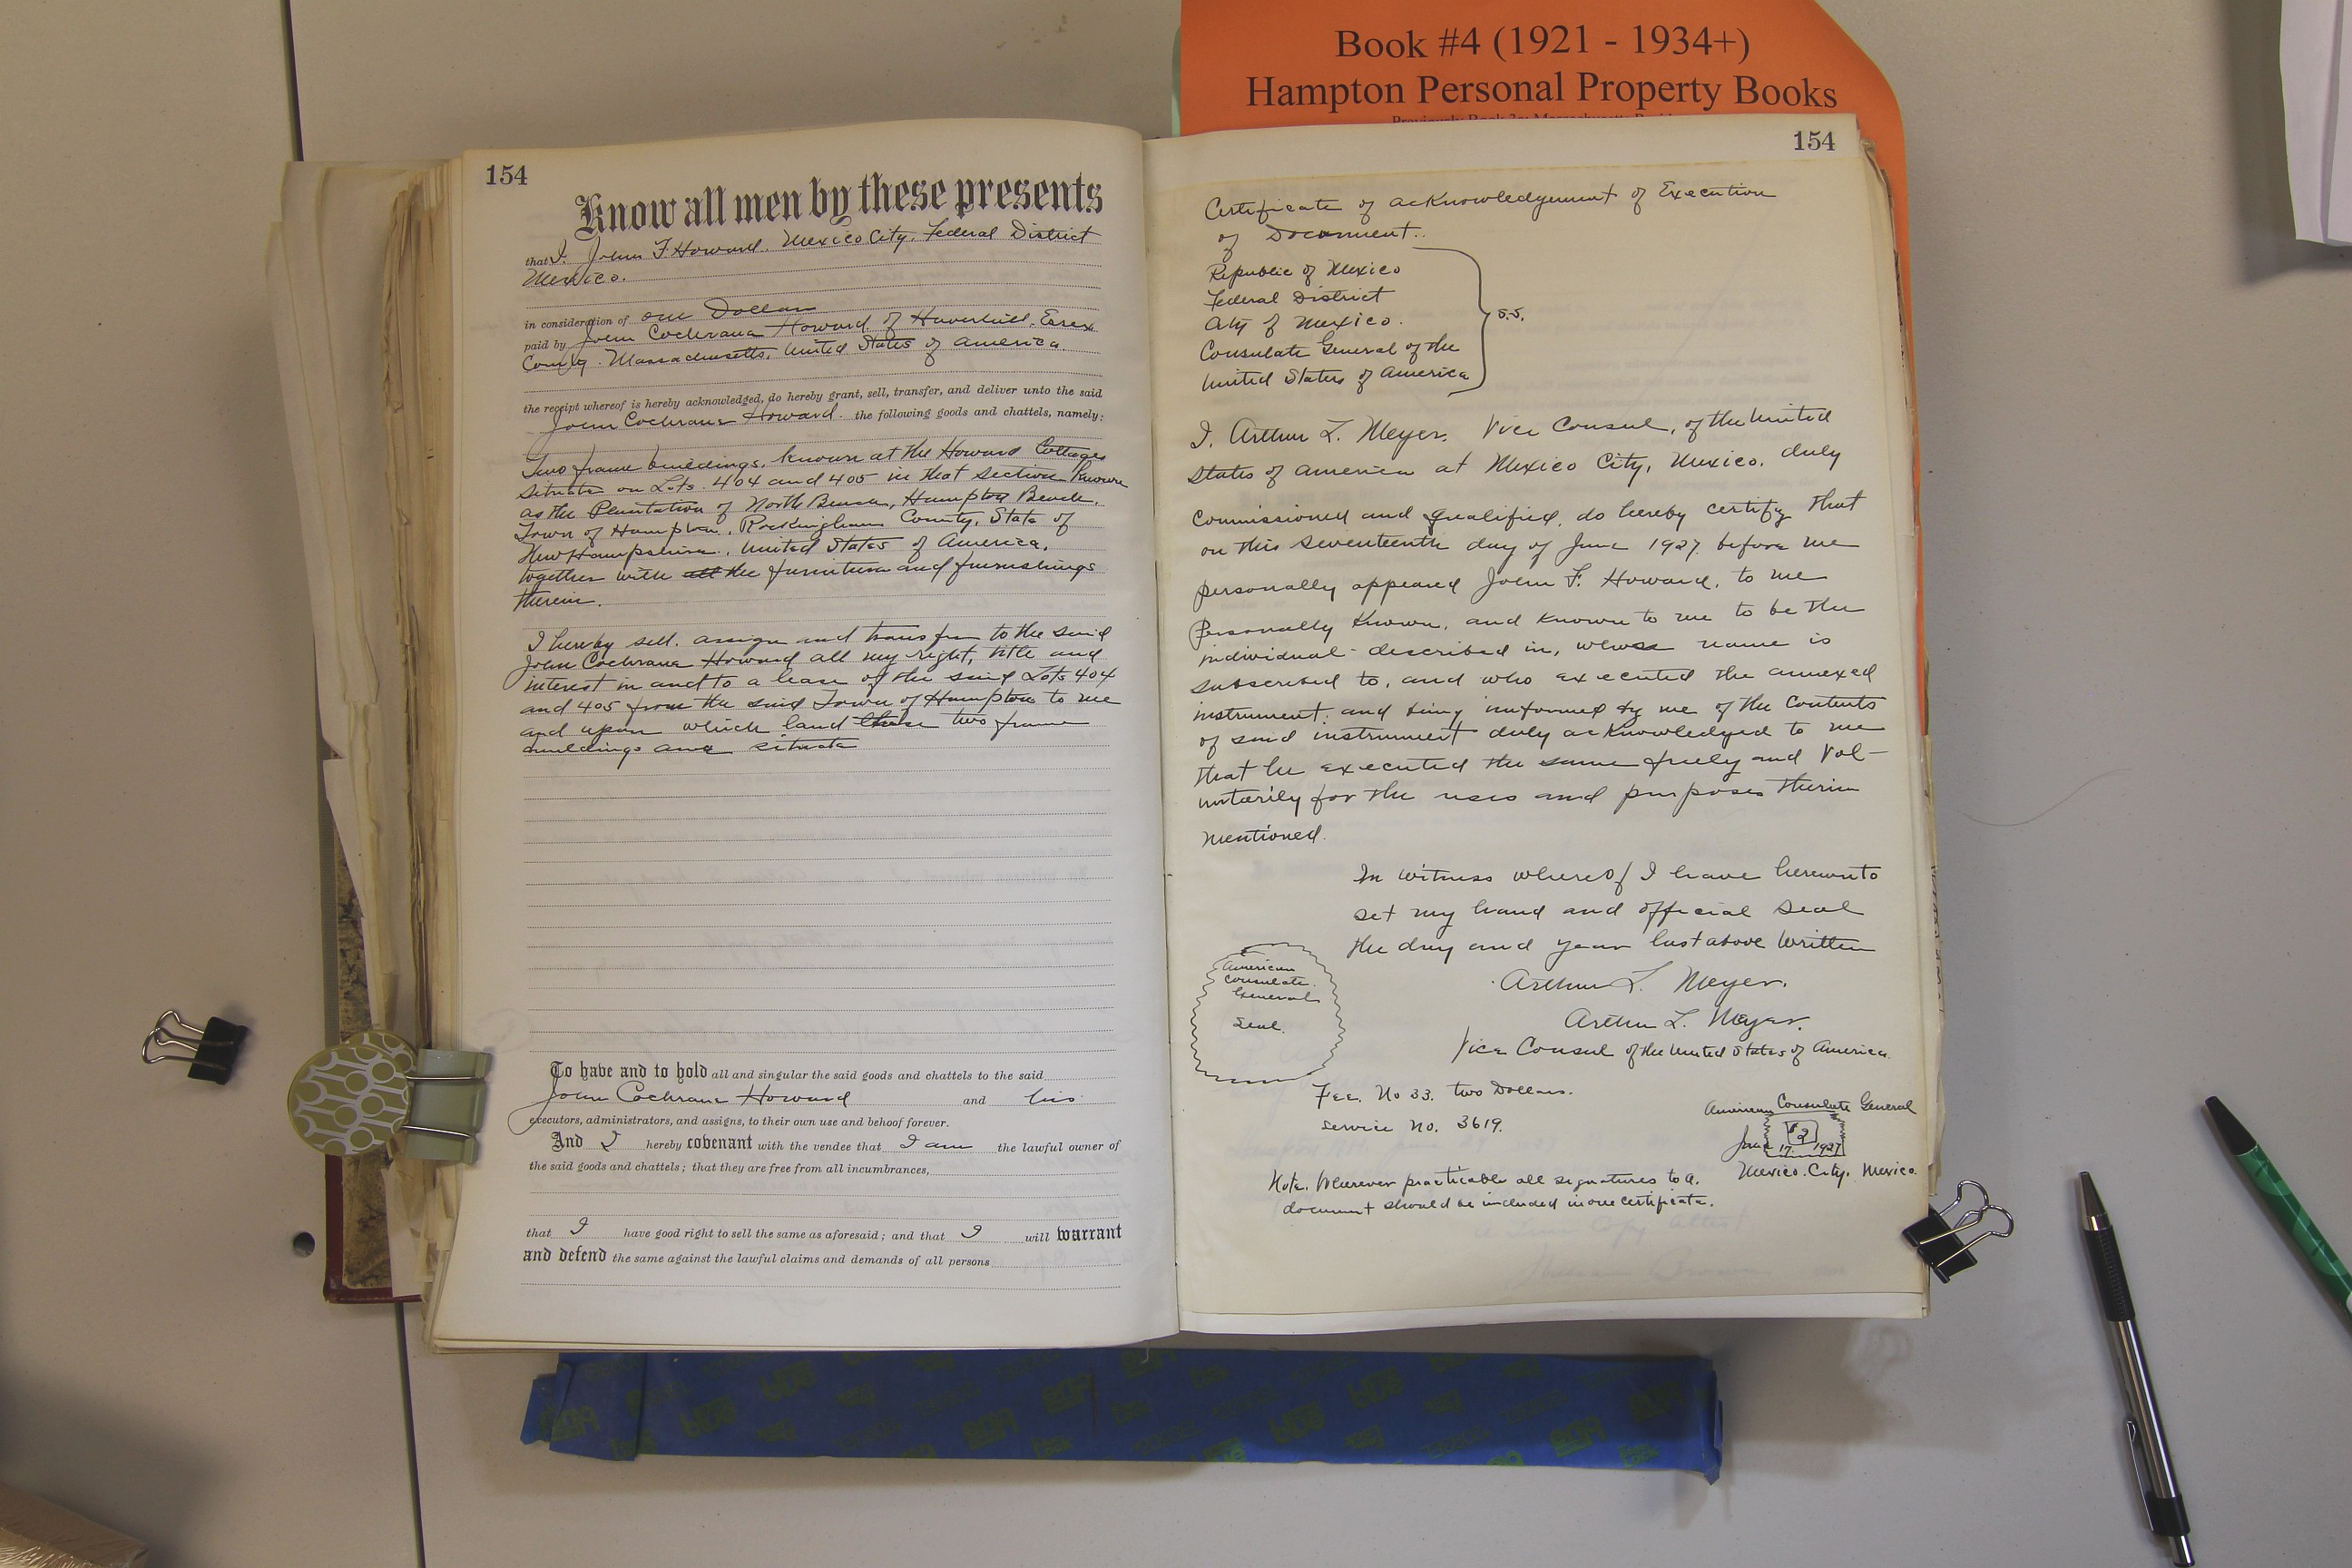 Book #4 (1921 - 1934+)
Hampton Personal Property Books
154
Know all men by these presents
that I. John F. Howard. Mexico City, Federal District
Mexico.
in consideration of one Dollar
paid by John Cochrane Howard of Haverhill, Essex
County. Massachusetts, United States of America.
the receipt whereof is hereby acknowledged, do hereby grant, sell, transfer, and deliver unto the said
John Cochrane Howard. the following goods and chattels, namely:
Two frame buildings, known at the Howard Cottages
situate on Lots 404 and 405 in that section known
as the Plantation of North Beach, Hampton Beach,
Town of Hampton, Rockingham County, State of
New Hampshire, United States of America,
together with all the furniture and furnishings
therein.
I hereby sell, assign and transfer to the said
John Cochrane Howard all my right, title and
interest in and to a lease of the said Lots 404
and 405 from the said Town of Hampton to me
and upon which land these two frame
buildings are situate
To have and to hold all and singular the said goods and chattels to the said
John Cochrane Howard and his
executors, administrators, and assigns, to their own use and behoof forever.
And I hereby covenant with the vendee that I am the lawful owner of
the said goods and chattels; that they are free from all incumbrances,
that I have good right to sell the same as aforesaid; and that I will warrant
and defend the same against the lawful claims and demands of all persons
154
Certificate of acknowledgement of Execution
of Document.
Republic of Mexico
Federal District
City of Mexico.
Consulate General of the
United States of America
S.S.
I. Arthur L. Meyer. Vice Consul, of the United
States of America at Mexico City, Mexico, duly
commissioned and qualified, do hereby certify that
on this seventeenth day of June 1927. before me
personally appeared John F. Howard, to me
personally known, and known to me to be the
individual described in, whose name is
subscribed to, and who executed the annexed
instrument, and being informed by me of the contents
of said instrument duly acknowledged to me
that he executed the same freely and vol-
untarily for the uses and purposes therein
mentioned.
In witness whereof I have hereunto
set my hand and official seal
the day and year last above written
American
Consulate
General
Seal.
Arthur L. Meyer.
Arthur L. Meyer.
Vice Consul of the United States of America.
Fee. No 33. two Dollars.
Service No. 3619.
American Consulate General
$2
June 17. 1927
Mexico City, Mexico.
Note. Wherever practicable all signatures to a
document should be included in one certificate.